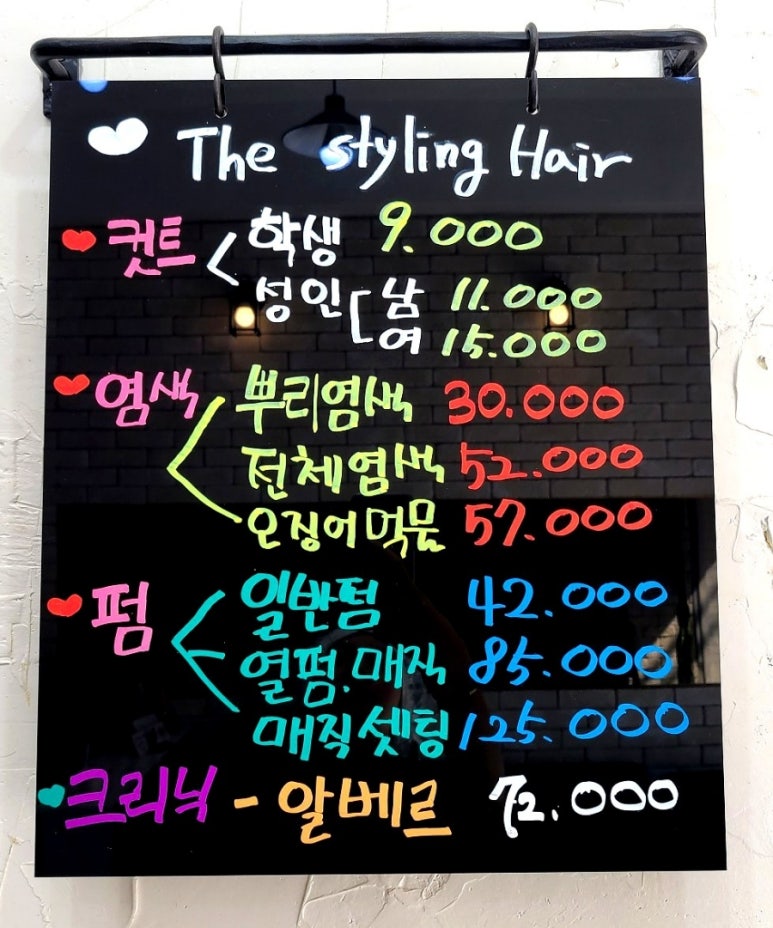 The styling Hair
컷트 학생 9.000
성인 남 11.000
여 15.000
염색 뿌리염색 30.000
전체염색 52.000
오징어먹물 57.000
펌 일반펌 42.000
열펌.매직 85.000
매직셋팅 125.000
크리닉 - 알베르 72.000